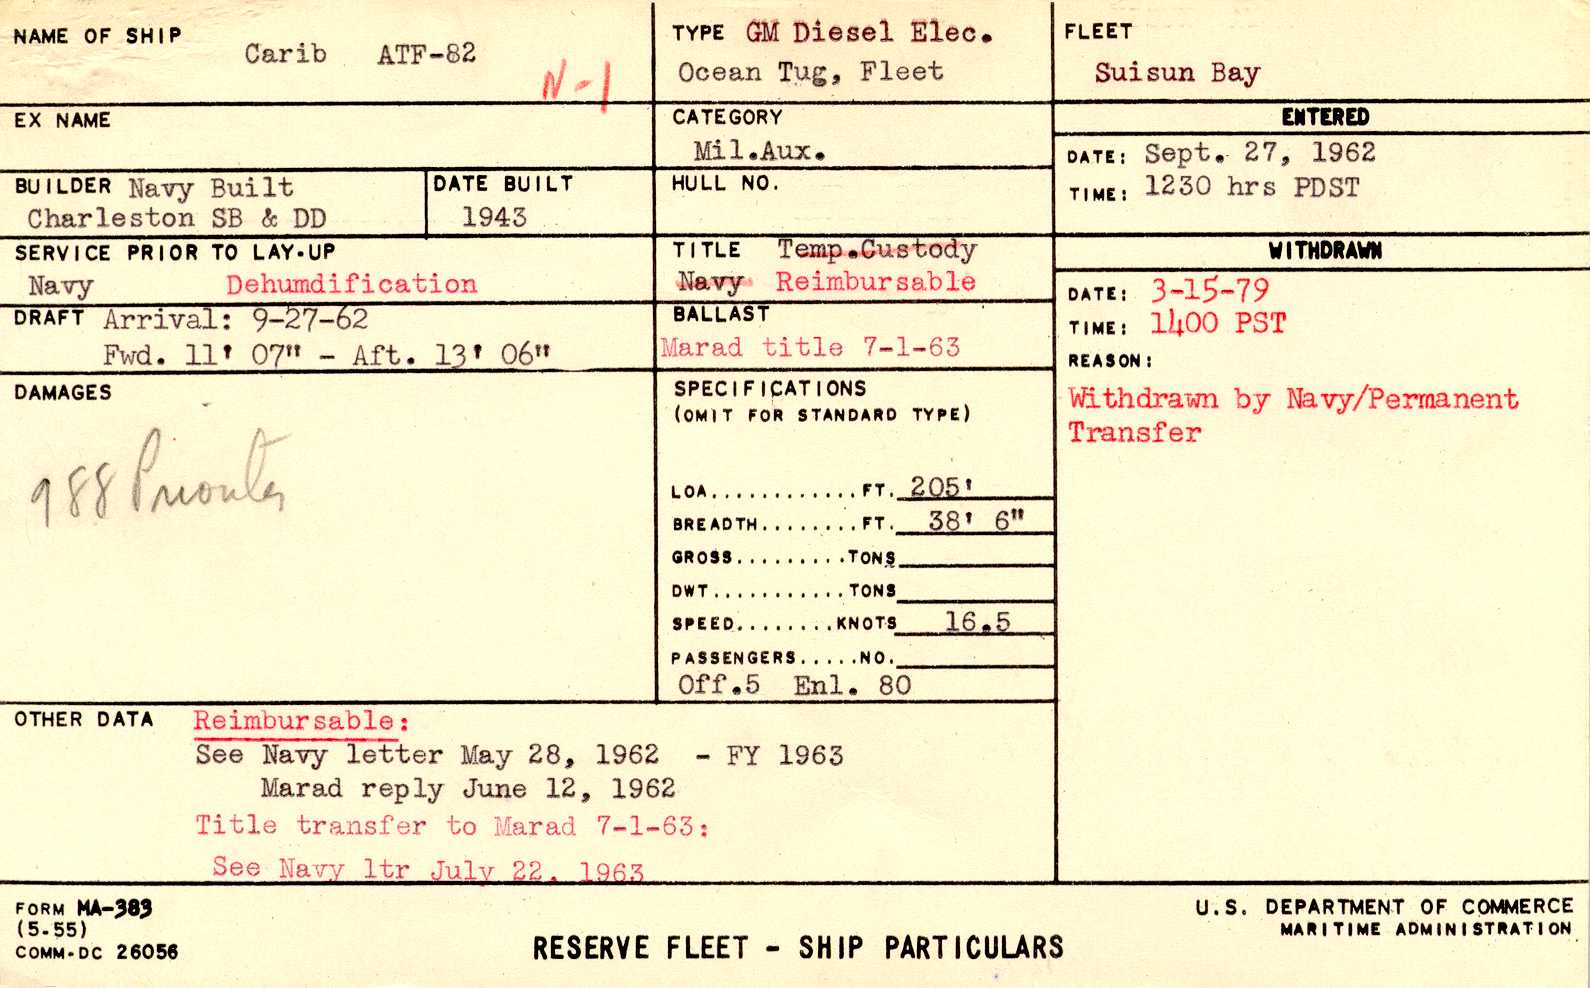 NAME OF SHIP
Carib ATF-82
N-1
TYPE GM Diesel Elec.
Ocean Tug, Fleet
FLEET
Suisun Bay
EX NAME
CATEGORY
Mil.Aux.
ENTERED
DATE: Sept. 27, 1962
TIME: 1230 hrs PDST
BUILDER Navy Built
Charleston SB & DD
DATE BUILT
1943
HULL NO.
SERVICE PRIOR TO LAY-UP
Navy Dehumdification
TITLE Temp.Custody
Navy Reimbursable
WITHDRAWN
DATE: 3-15-79
TIME: 1400 PST
REASON:
Withdrawn by Navy/Permanent
Transfer
DRAFT Arrival: 9-27-62
Fwd. 11' 07" - Aft. 13' 06"
BALLAST
Marad title 7-1-63
DAMAGES
988
SPECIFICATIONS
(OMIT FOR STANDARD TYPE)
LOA............FT. 205'
BREADTH........FT. 38' 6"
GROSS.........TONS
DWT...........TONS
SPEED........KNOTS 16.5
PASSENGERS.....NO.
Off.5 Enl. 80
OTHER DATA Reimbursable:
See Navy letter May 28, 1962 - FY 1963
Marad reply June 12, 1962
Title transfer to Marad 7-1-63:
See Navy ltr July 22, 1963
FORM MA-383
(5-55)
COMM-DC 26056
RESERVE FLEET - SHIP PARTICULARS
U.S. DEPARTMENT OF COMMERCE
MARITIME ADMINISTRATION